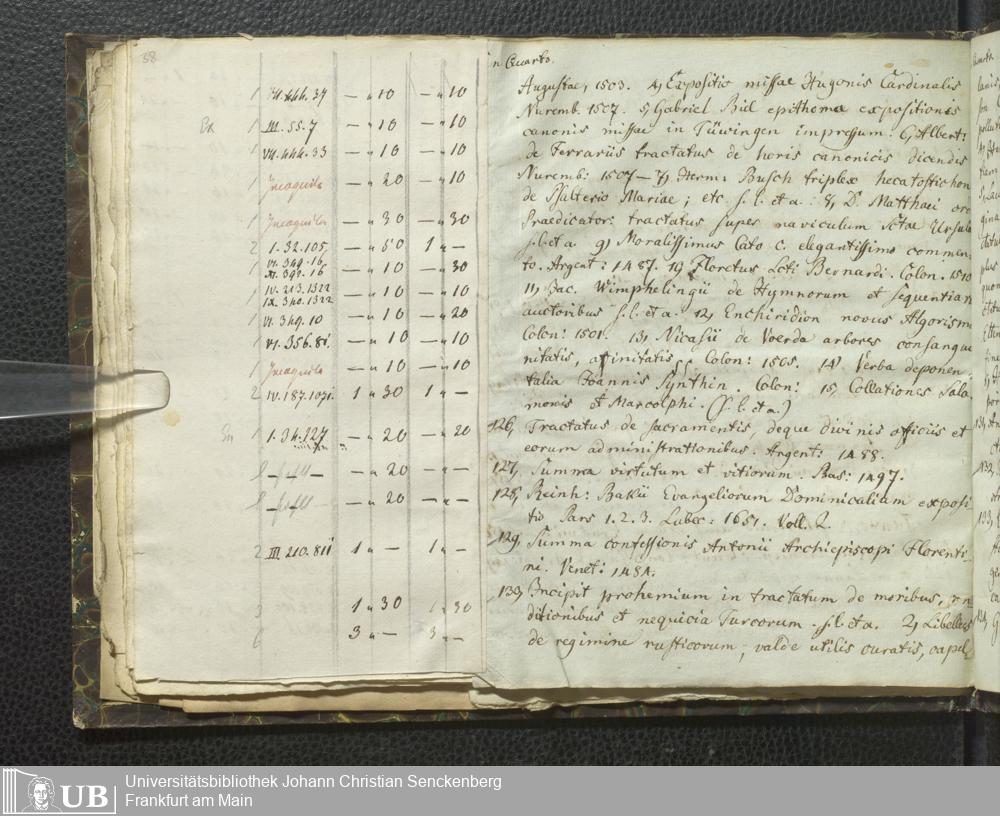 58
1 VI.444.34 — " 10 — " 10
Ex 1 III.55.7 — " 10 — " 10
1 VI.444.33 — " 10 — " 10
1 Incognita — " 20 — " 10
1 Incognita — " 30 — " 30
2 1.32.105 — " 50 1 " —
VI.349.16
1 XI.392.16 — " 10 — " 30
IV.213.1322
1 IX.340.1322 — " 10 — " 10
1 VI.349.10 — " 10 — " 20
1 VI.356.81 — " 10 — " 10
1 Incognita — " 10 — " 10
2 IV.187.1091 1 " 30 1 " —
En 1 1.34.127 — " 20 — " 20
— " 20 — " —
— " 20 — " —
2 III.210.811 1 " — 1 " —
3 1 " 30 1 " 30
6 3 " — 3 " —
n Quarto.
Augustae, 1503. 4, Expositio missae Hugonis Cardinalis
Nuremb. 1507. 5, Gabriel Biel epithoma expositionis
canonis missae in Tüwingen impressum. 6, Albert:
de Ferrariis tractatus de horis canonicis dicendis
Nuremb: 1507 — 7, Herm: Busch triplex hecatostichon
de Psalterio Mariae; etc. s.l. et a. 8, D. Matthaei or
Praedicator: tractatus super naviculum sctae Ursula
s.l. et a 9, Moralissimus Cato c. elegantissimo commen
to. Argent: 1487. 10, Floretus Scti Bernardi. Colon. 1510
11, Jac. Wimphelingii de Hymnorum et sequentiar
auctoribus s.l. et a. 12, Enchiridion novus Algorismi
Colon: 1501. 13, Nicasii de Voerda arbores consangui
nitatis, affinitatis. Colon: 1505. 14, Verba deponen-
talia Joannis Synthin. Colon: 15, Collationes Salo-
monis et Marcolphi. (s.l. et a.)
126, Tractatus de sacramentis, deque divinis officiis et
eorum administrationibus. Argent: 1488.
127, Summa virtutum et vitiorum. Bas: 1497.
128, Reinh: Bakii Evangeliorum Dominicalium exposi
tio Pars 1.2.3. Lubec: 1651. Voll. 2.
129, Summa confessionis Antonii Archiepiscopi Florenti-
ni. Venet: 1484.
130, Incipit prohemium in tractatum de moribus, con
ditionibus et nequicia Turcorum. s.l. et a. 2, Libellus
de regimine rusticorum, valde utilis curatis, capel
UB
Universitätsbibliothek Johann Christian Senckenberg
Frankfurt am Main